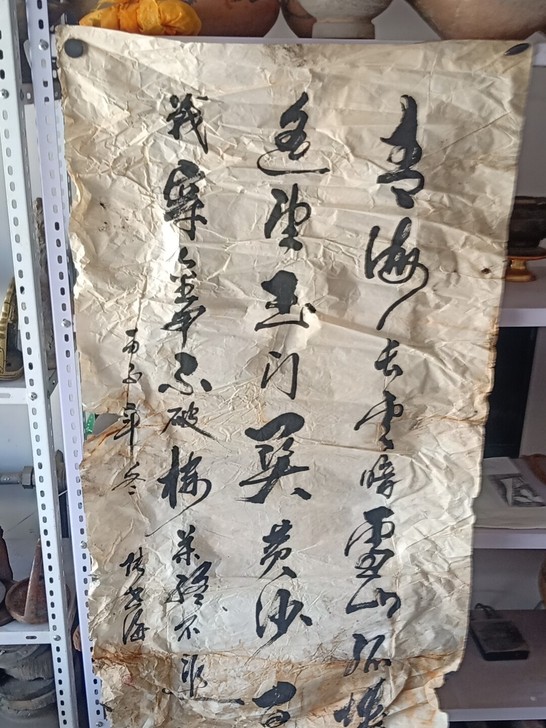 青海长雲暗雪山孤城
遥望玉门关黄沙百
战穿金甲不破楼兰终不还
丙子年冬